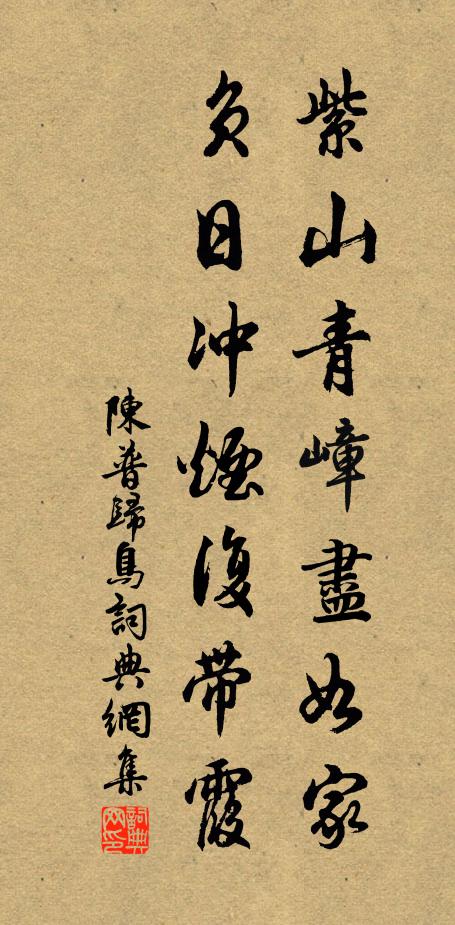 紫山青嶂盡如家
負日冲煙復帶霞
陳普歸鳥詞典網集
詞典网印